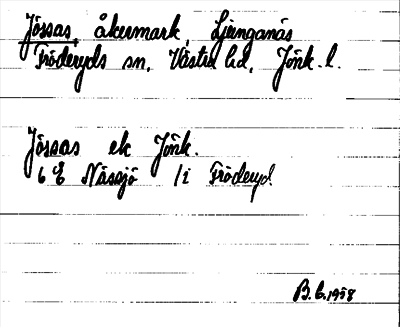 Jössas, åkermark, Ljunganäs
Fröderyds sn, Västra hd, Jönk. l.
Jössas ek Jönk.
6 E Nässjö 1 i Fröderyd
B. G. 1958